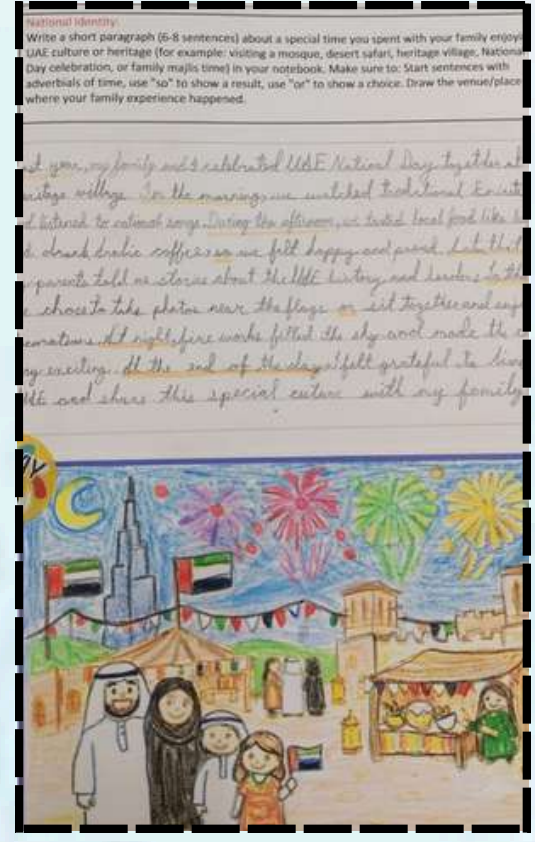 National Identity:
Write a short paragraph (6-8 sentences) about a special time you spent with your family enjoyi
UAE culture or heritage (for example: visiting a mosque, desert safari, heritage village, National
Day celebration, or family majlis time) in your notebook. Make sure to: Start sentences with
adverbials of time, use "so" to show a result, use "or" to show a choice. Draw the venue/place
where your family experience happened.
year, my family and I celebrated UAE National Day together at
village. In the morning, we watched traditional
listened to national songs. During the afternoon, we tasted local food like
drank Arabic coffee so we felt happy and proud.
parents told me stories about the UAE history and leaders
to take photos near the flags or sit together and
At night fire works filled the sky and made the
exciting. At the end of the day I felt grateful to
and share this special culture with my family
AY